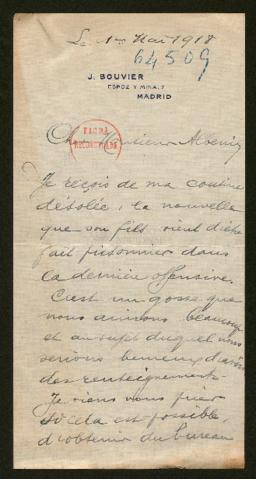 Le 1er Mai 1918
64509
J. BOUVIER
ESPOZ Y MINA, 7
MADRID
Cher Monsieur
Je reçois de ma cousine
désolée, la nouvelle
que son fils, vient d'être
fait prisonnier dans
la dernière offensive.
C'est un gosse que
nous aimons beaucoup
et au sujet duquel nous
serions heureux d'avoir
des renseignements.
Je viens vous prier
si cela est possible,
d'obtenir du bureau